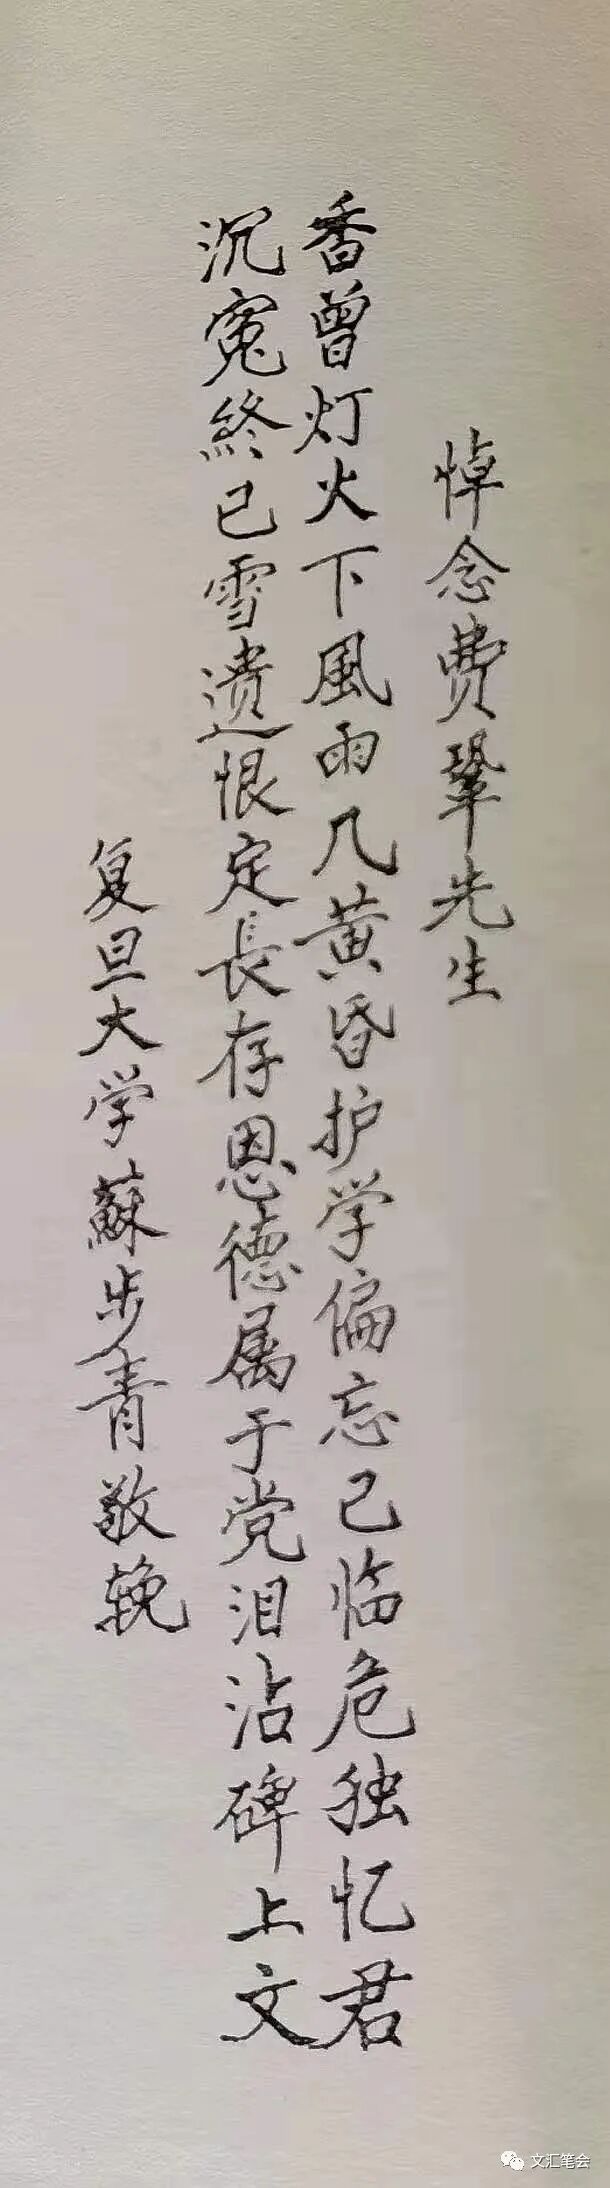 悼念费鞏先生
香曾灯火下風雨几黄昏护学偏忘己临危独忆君
沉寃終已雪遗恨定長存恩德属于党泪沾碑上文
复旦大学蘇步青敬挽
文汇笔会